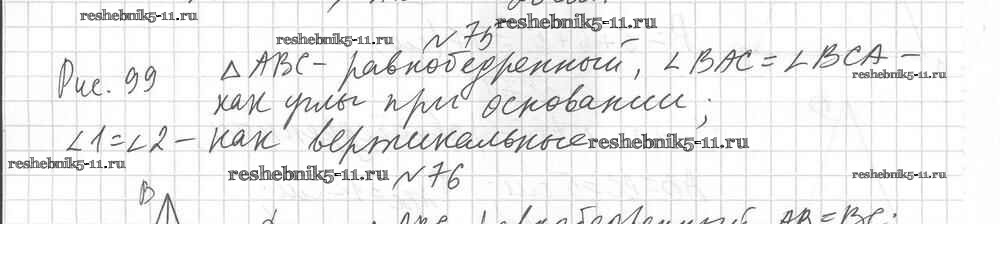 reshebnik5-11.ru
reshebnik5-11.ru
reshebnik5-11.ru
№ 75
Рис. 99 △ ABC - равнобедренный, ∠BAC = ∠BCA -
reshebnik5-11.ru
как углы при основании;
∠1 = ∠2 - как вертикальные
reshebnik5-11.ru
reshebnik5-11.ru
reshebnik5-11.ru
№ 76
reshebnik5-11.ru
B
AB = BC;